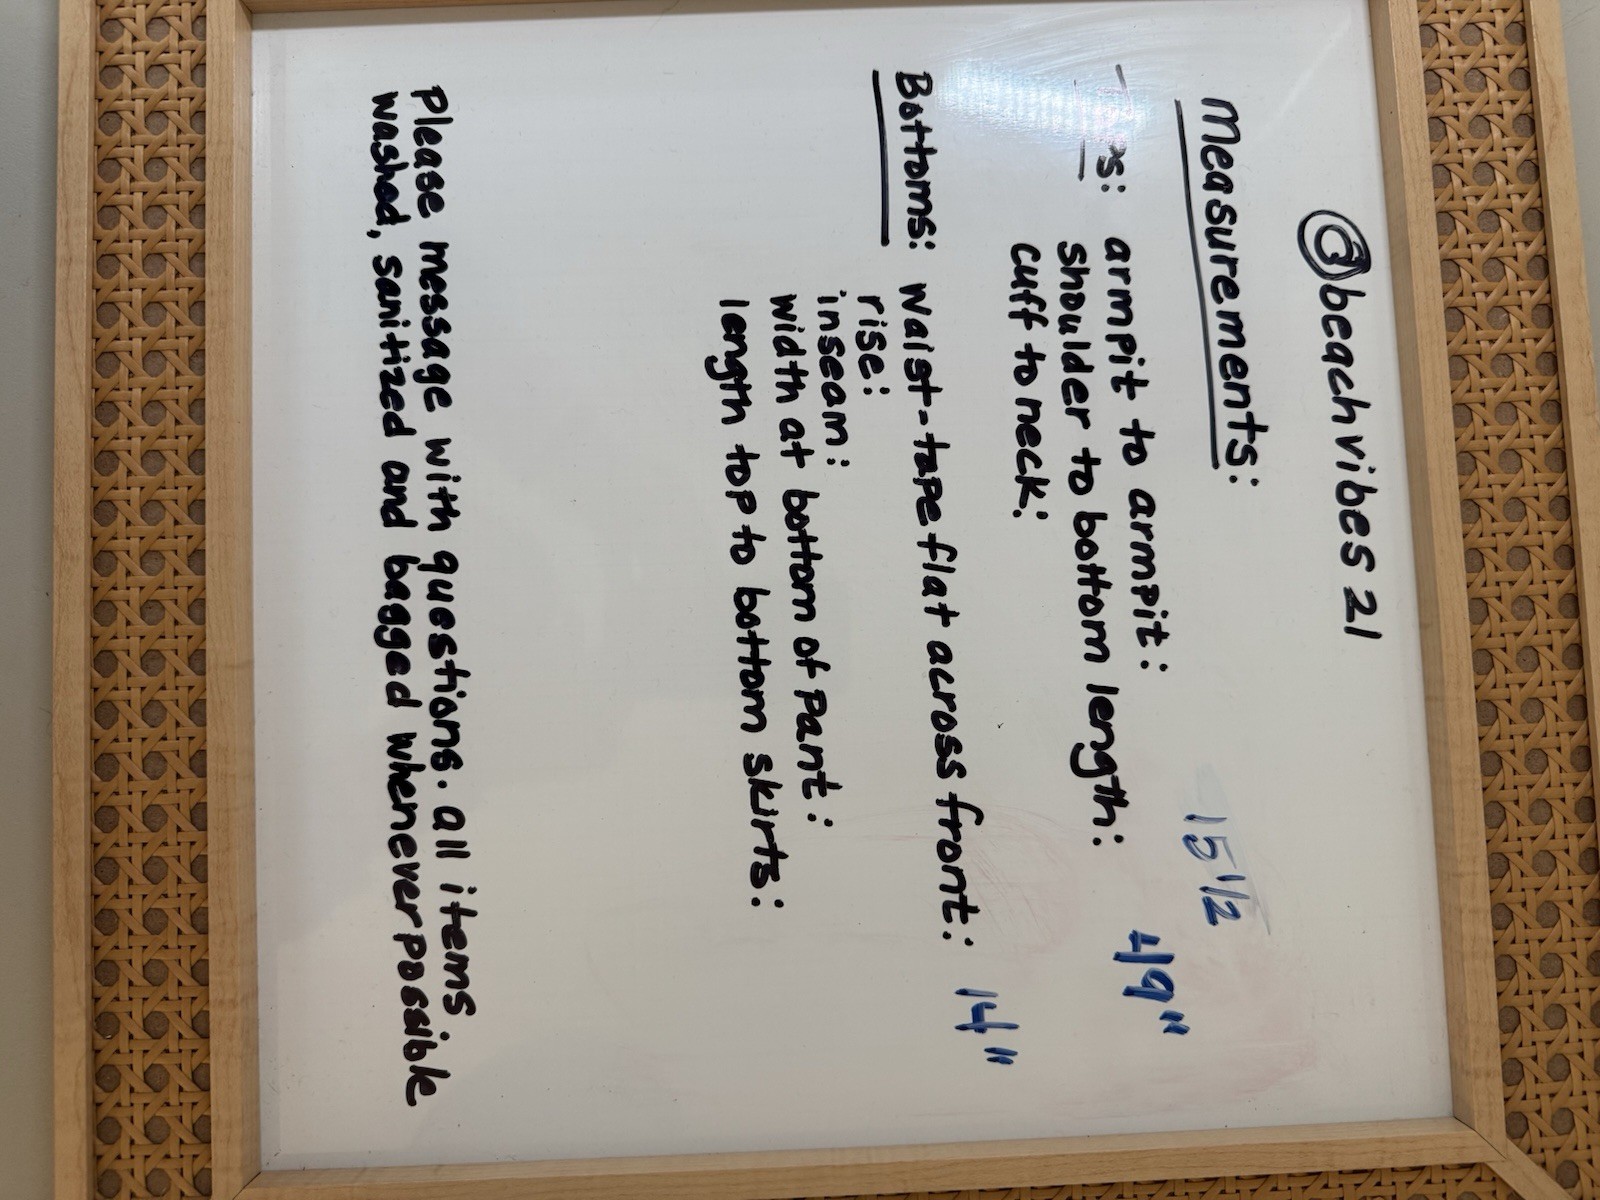 @beachvibes 21
Measurements:
Tops: armpit to armpit: 15 1/2
shoulder to bottom length: 49"
cuff to neck:
Bottoms: waist-tape flat across front: 14"
rise:
inseam:
width at bottom of pant:
length top to bottom skirts:
Please message with questions. all items
washed, sanitized and bagged whenever possible